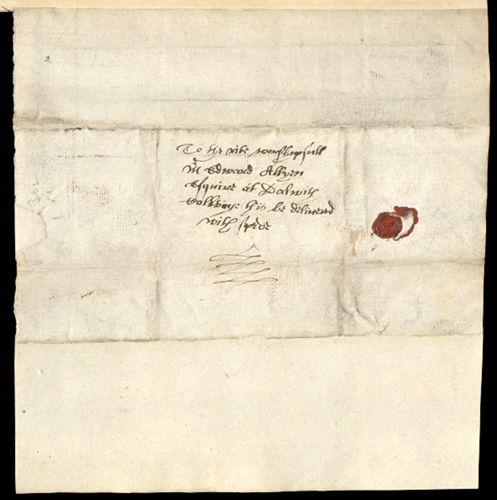 To the rite worshipfull
Mr Edward Allyen
Esquire at Dolwich
Colledge this be deliuered
with speede